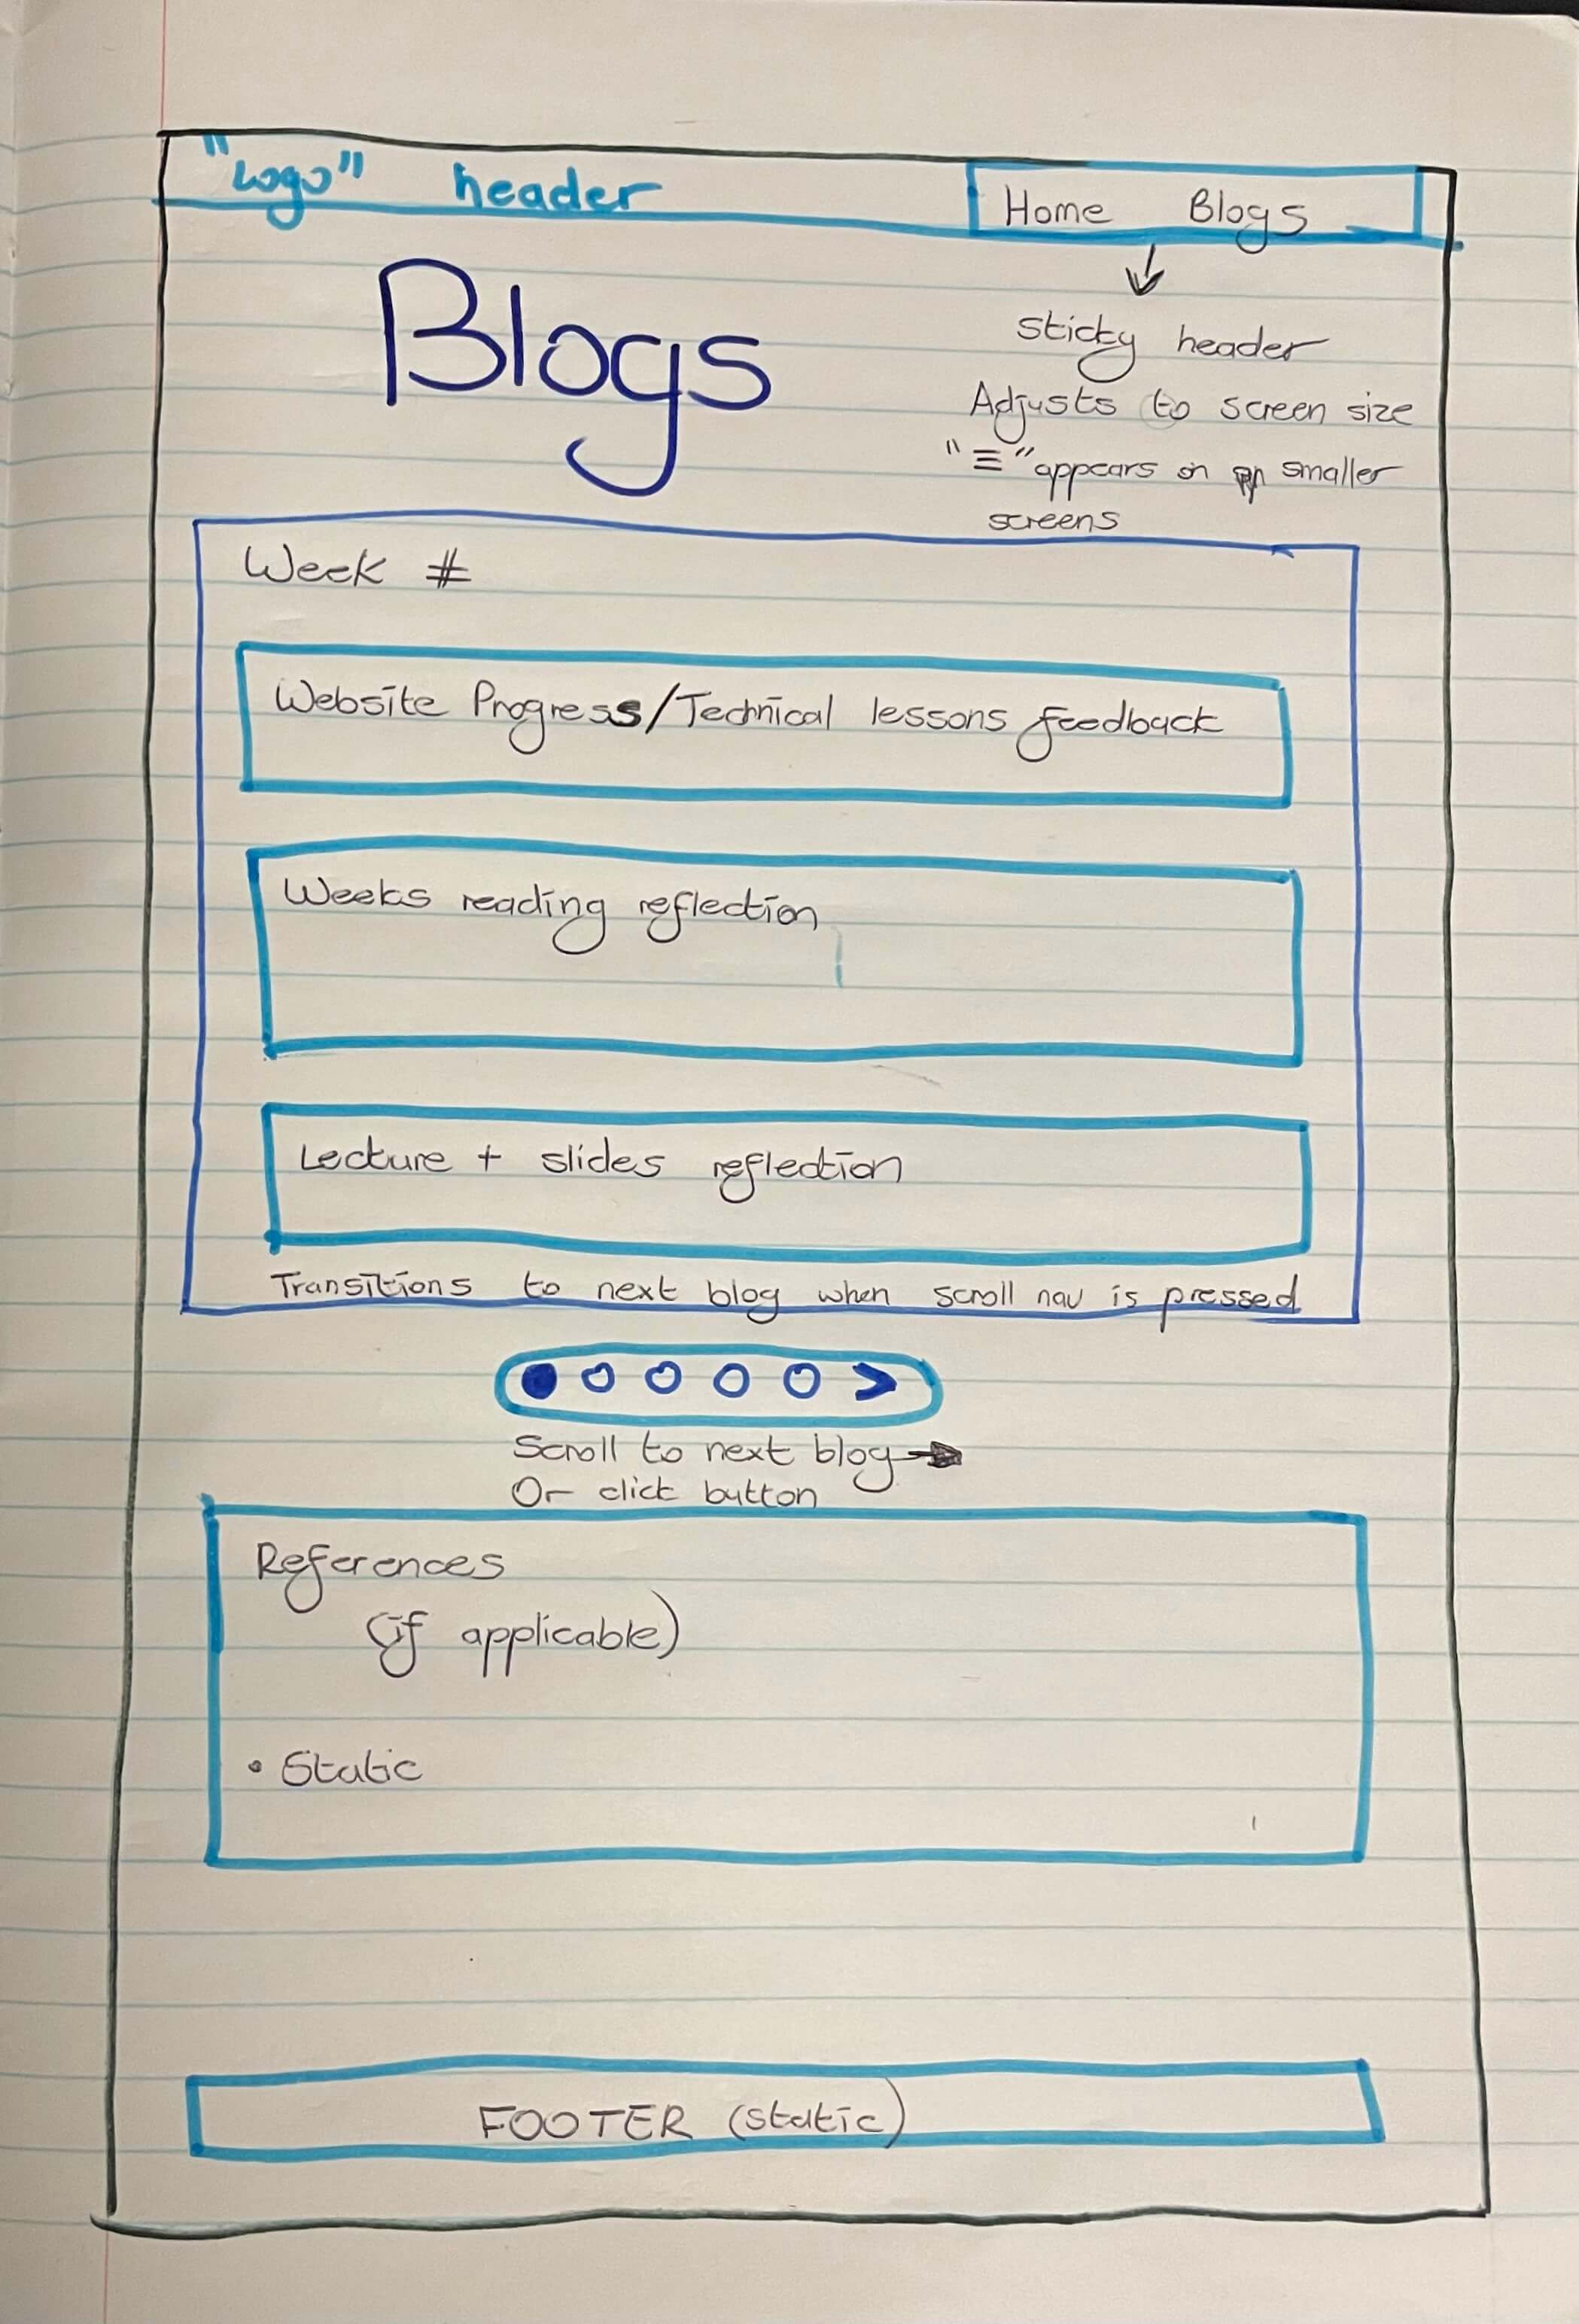 "Logo" header
Home Blogs
Blogs
sticky header
Adjusts to screen size
"≡" appears on smaller
screens
Week #
Website Progress/Technical lessons feedback
Weeks reading reflection
Lecture + slides reflection
Transitions to next blog when scroll nav is pressed
Scroll to next blog
Or click button
References
(if applicable)
• Static
FOOTER (static)